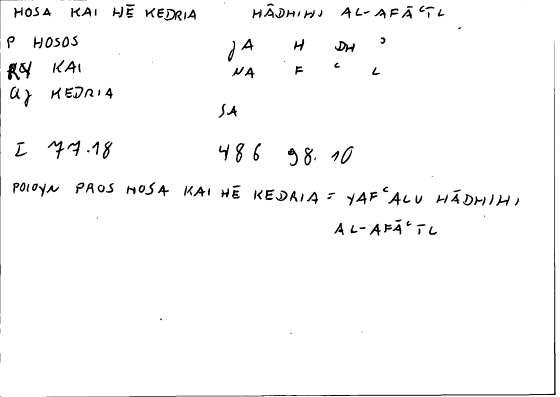 HOSA KAI HĒ KEDRIA HĀDHIHI AL-AFĀʿĪL
P HOSOS jA H DH ʾ
KAI NA F ʿ L
aj KEDRIA
SA
I 77.18 486 98.10
POIOYN PROS HOSA KAI HĒ KEDRIA = YAFʿALU HĀDHIHI
AL-AFĀʿĪL